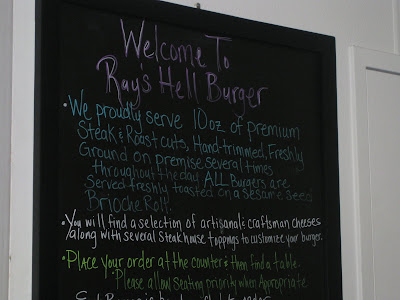 Welcome To
Ray's Hell Burger
• We proudly serve 10oz of premium
Steak & Roast cuts, Hand-trimmed, Freshly
Ground on premise several times
throughout the day. ALL Burgers are
Served freshly toasted on a Sesame Seed
Brioche Roll!
• You will find a selection of artisanal & craftsman cheeses
along with several Steakhouse toppings to customize your burger.
• Place your order at the counter & then find a table.
• Please allow Seating priority when Appropriate